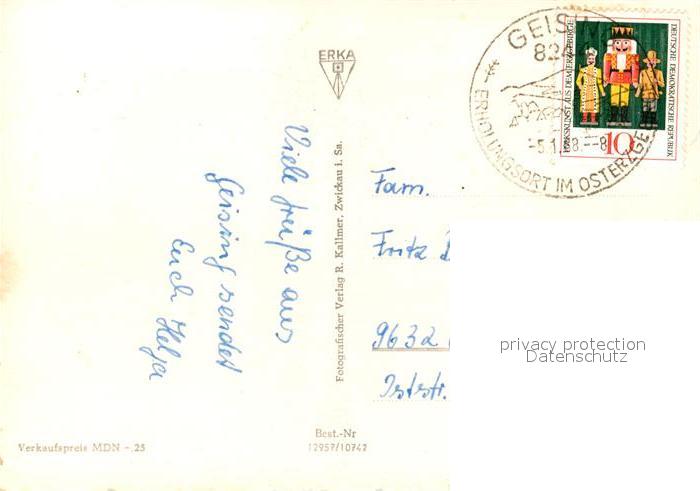 ERKA
Viele Grüße aus
Geising sendet
Euch Helga
Verkaufspreis MDN -,25
Fotografischer Verlag R. Kallmer, Zwickau i. Sa.
Best.-Nr
12957/10742
GEISING
824
ERHOLUNGSORT IM OSTERZGE
-5.1
8.--8
VOLKSKUNST AUS DEM ERZGEBIRGE
DEUTSCHE DEMOKRATISCHE REPUBLIK
10
Fam.
Fritz
9632
Oststr.
privacy protection
Datenschutz